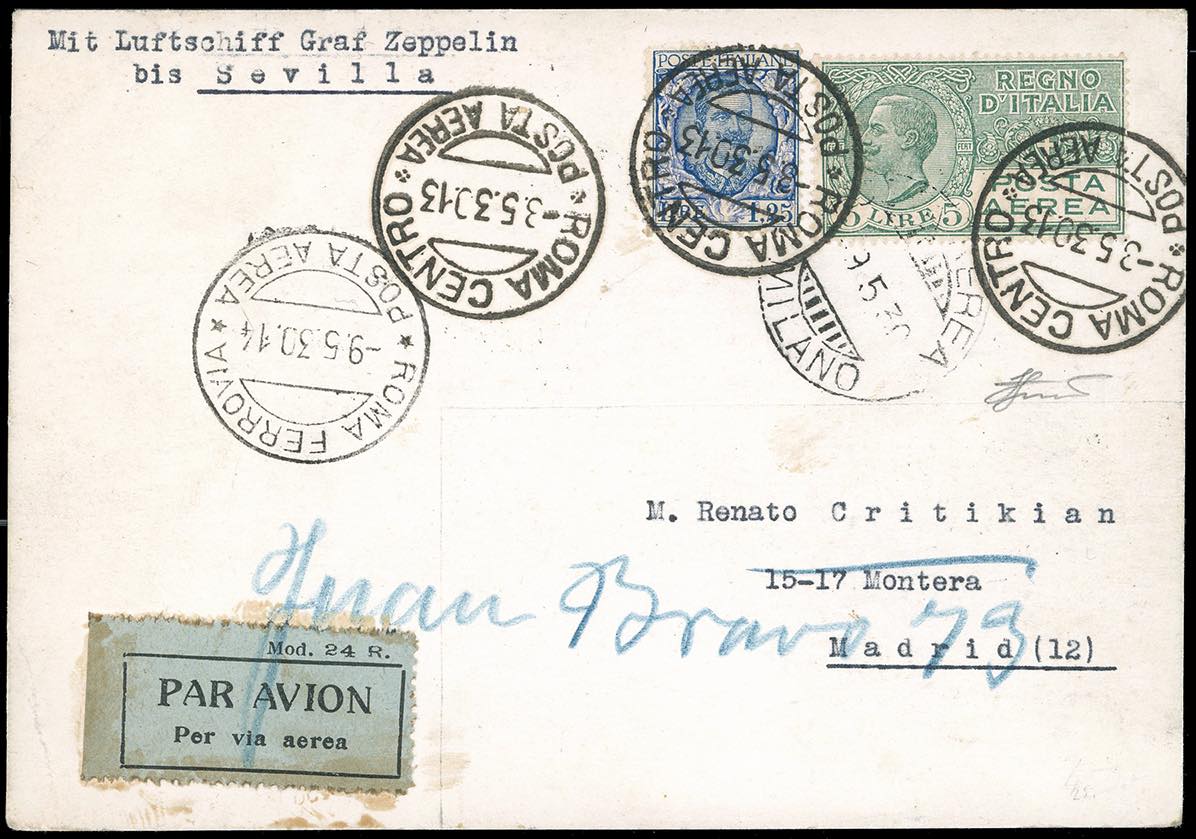 Mit Luftschiff Graf Zeppelin
bis Sevilla
POSTE ITALIANE
LIRE 1.25
REGNO
D'ITALIA
FERT
POSTA
AEREA
5 LIRE 5
ROMA CENTRO
POSTA AEREA
-3.5.30.13
ROMA CENTRO
POSTA AEREA
-3.5.30.13
ROMA CENTRO
POSTA AEREA
-3.5.30.13
ROMA FERROVIA
POSTA AEREA
-9.5.30.14
MILANO
9.5.30
AEREA
M. Renato Critikian
15-17 Montera
Madrid (12)
Juan Bravo 73
Mod. 24 R.
PAR AVION
Per via aerea